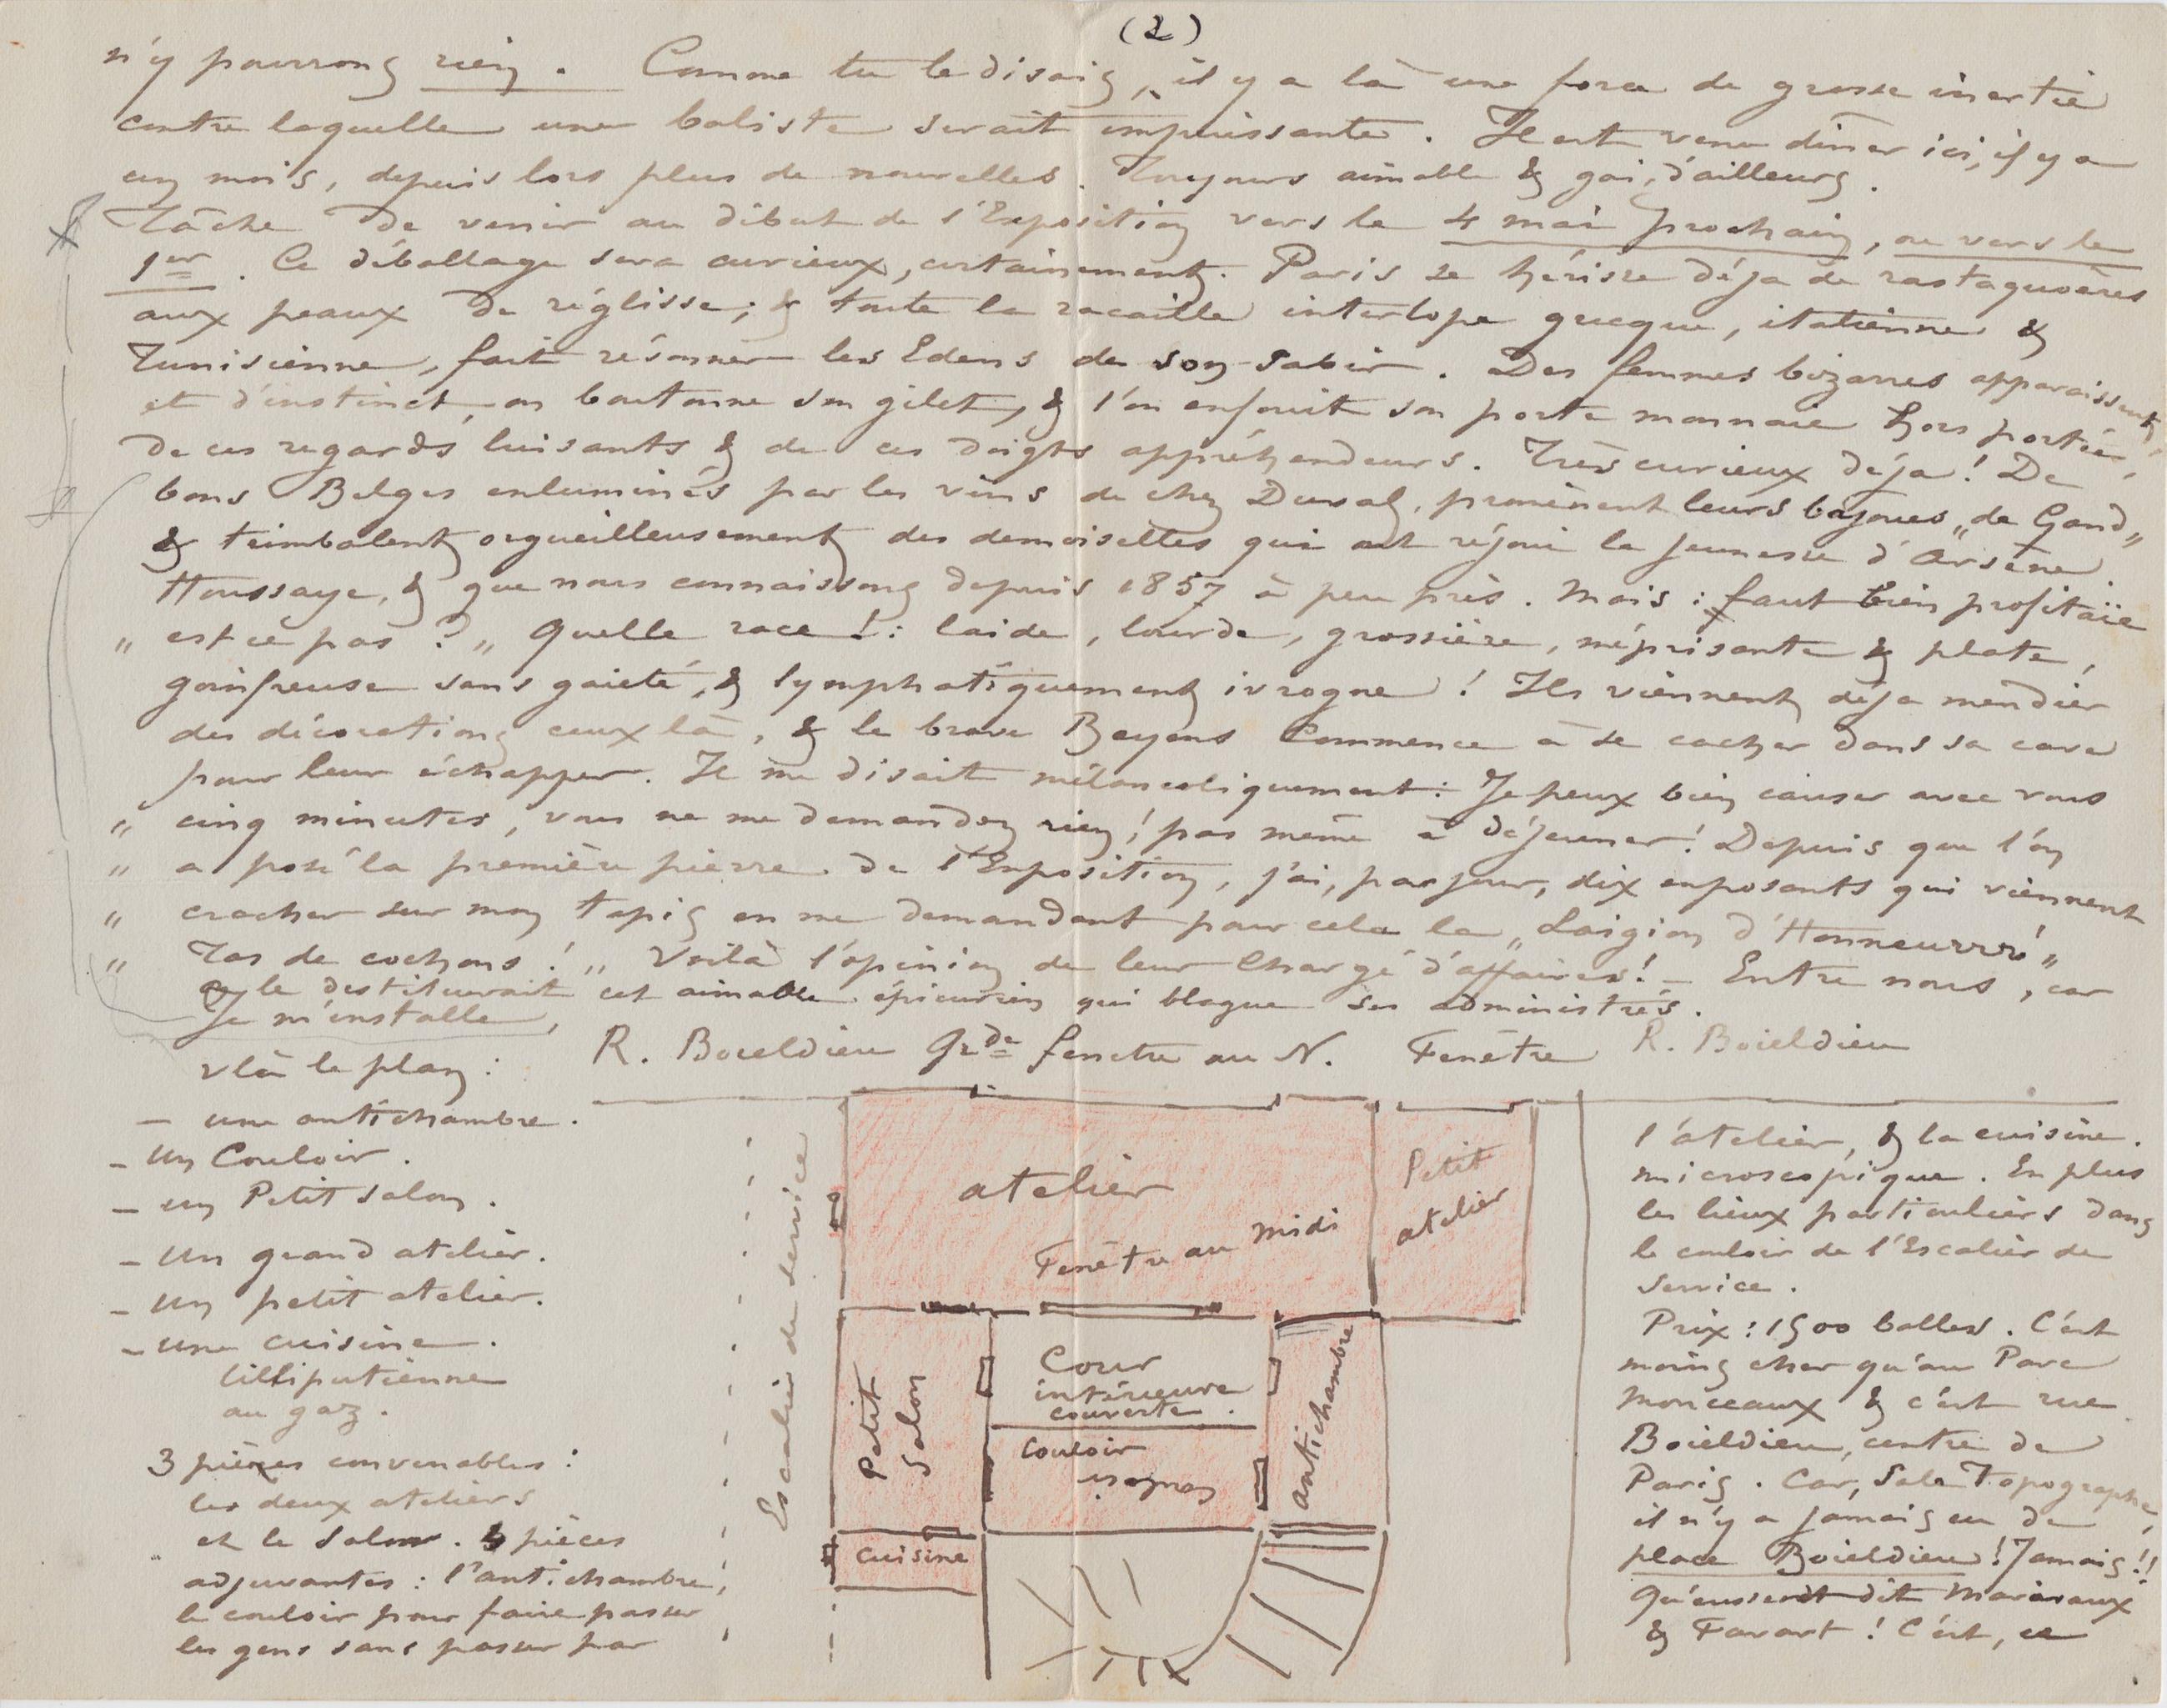 (2)
n'y pourrons rien. Comme tu le disais, il y a là une force de grosse inertie
contre laquelle une baliste serait impuissante. Il est venu dîner ici, il y a
un mois, depuis lors plus de nouvelles. Toujours aimable & gai, d'ailleurs.
Tâche de venir au début de l'Exposition vers le 4 mai prochain, ou vers le
1er. Ce déballage sera curieux, certainement. Paris se hérisse déja de rastaquouères
aux peaux de réglisse; & toute la racaille interlope grecque, italienne &
Tunisienne, fait résonner les Edens de son sabir. Des femmes bizarres apparaissent,
et d'instinct, on boutonne son gilet, & l'on enfouit son porte monnaie hors portée,
de ces regards luisants & de ces doigts appréhendeurs. Très curieux déja! De
bons Belges enluminés par les vins de chez Duval, promènent leurs bajoues „de Gand„
& trimbalent orgueilleusement des demoiselles qui ont réjoui la jeunesse d'Arsène
Houssaye, & que nous connaissons depuis 1857 à peu près. Mais: faut bien profitaïe
„ est ce pas ?„ Quelle race!: laide, lourde, grossière, méprisante & plate,
goinfreuse sans gaieté, & lymphatiquement ivrogne! Ils viennent déja mendier
des décorations ceux là, & le brave Beyens commence à se cacher dans sa cave
pour leur échapper. Il me disait mélancoliquement: Je peux bien causer avec vous
„ cinq minutes, vous ne me demandez rien! pas même à déjeuner! Depuis que l'on
„ a posé la première pierre de l'Exposition, j'ai, par jour, dix exposants qui viennent
„ cracher sur mon tapis en me demandant pour cela la „Laigion d'Honneurrr!„
„ Tas de cochons!„ Voilà l'opinion de leur chargé d'affaires! – Entre nous, car
on le destituerait cet aimable épicurien qui blague ses administrés.
Je m'installe,
vlà le plan:
– une antichambre.
– Un Couloir.
– un Petit salon.
– Un grand atelier.
– Un petit atelier.
– une cuisine.
lilliputienne
au gaz.
3 pièces convenables:
les deux ateliers
et le salon. 3 pièces
adjuvantes: l'antichambre,
le couloir pour faire passer
les gens sans passer par
R. Boieldieu Gde fenetre au N. Fenêtre R. Boieldieu
Escalier de service
atelier
Fenêtre au midi
Petit
atelier
Petit
Salon
Cour
intérieure
couverte.
couloir
couloir
antichambre
cuisine
l'atelier, & la cuisine.
microscopique. En plus
les lieux particuliers dans
le couloir de l'Escalier de
service.
Prix: 1500 balles. C'est
moins cher qu'au Parc
Monceaux & c'est rue
Boieldieu, centre de
Paris. Car, Sale Topographe,
il n'y a jamais eu de
place Boieldieu! Jamais!!
Qu'eussent dit Marivaux
& Favart! C'est, ce